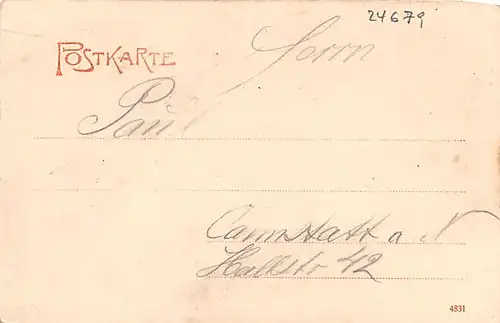 24679
POSTKARTE
Herrn
Paul
Cannstatt a N
Hallstr 42
4831